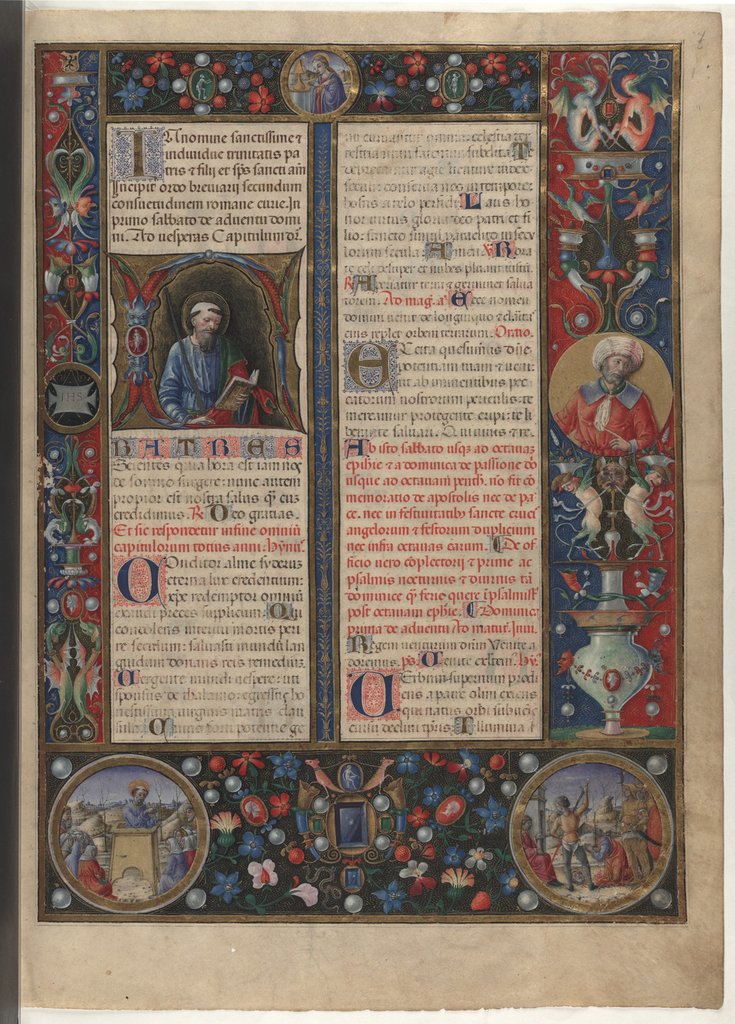 IN nomine sanctissime ⁊
individue trinitatis pa
tris ⁊ filij et sp̄s sancti am̄
Incipit ordo breviarij secundum
consuetudinem romane curie. In
primo sabbato de adventu domi
ni. Ad vesperas Capitulum
RATRES
Scientes quia hora est iam nos
de somno surgere: nunc autem
propior est nostra salus q̄ cuz
credidimus. R. Deo gratias.
Et sic respondetur in fine omniū
capitulorum totius anni. Hymn'.
Conditor alme syderuz
eterna lux credentium:
xp̄e redemptor omniū
exaudi preces supplicum. Qui
condolens interitu mortis peri
re seculum: salvasti mundū lan
guidum donans reis remedium.
Vergente mundi vespere: uti
sponsus de thalamo: egressus ho
nestissima virginis matris clau
sula. Cuius forti potentie ge
nu curvantur omnia: celestia ter
restria nutu fatentur subdita. Te
hostis a telo perfidi. Laus ho
nor virtus gloria deo patri et fi
lio: sancto simul paraclito in secu
lorum secula. Amen. V. Rora
te celi desuper et nubes pluant iustū.
R. Aperiatur terra ⁊ germinet salva
torem. Ad mag. a. Ecce nomen
domini venit de longinquo ⁊ clarita
eius replet orbem terrarum. Oratio.
Excita quesumus dn̄e
potentiam tuam ⁊ veni:
ut ab imminentibus pec
catorum nostrorum periculis: te
mereamur protegente eripi: te li
berante salvari. Qui vivis ⁊ re.
Ab isto sabbato usq̄ ad octavas
epiph̄ie ⁊ a dominica de passione do
usque ad octavam penth. no fit cō
memoratio de apostolis nec de pa
ce. nec in festivitatib; sancte cruc'
angelorum ⁊ festorum duplicium
nec infra octavas earum. De of
ficio vero completorij ⁊ prime ac
psalmis nocturnis ⁊ diurnis tā
dominice q̄ ferie quere in psalmist'
post octavam epiph̄ie. Dominic'
prima de adventu Ad matut. Invi.
Regem venturum dn̄m Venite a
doremus. ps. Venite exultem. Hy.
Verbum supernum prodi
ens a patre olim exiens
qui natus orbi subvenis
cursu declivi tp̄ris. Illumina
IHS